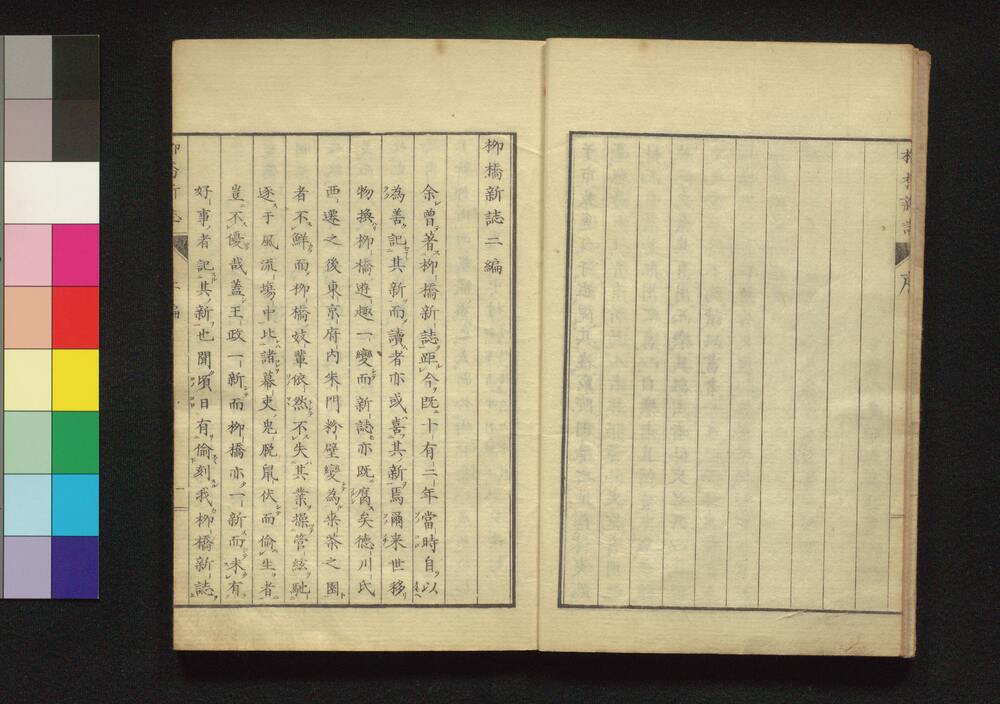 柳橋新誌二編
余曾著柳橋新誌距今既十有二年當時自以
為善記其新而讀者亦或喜其新焉爾来世移
物換柳橋遊趣一變而新誌亦既腐矣德川氏
西遷之後東京府内朱門粉壁變為桑茶之園
者不鮮而柳橋妓輩依然不失其業操管絃馳
逐于風流場中比諸幕吏鬼脱鼠伏而偷生者
豈不優哉蓋王政一新而柳橋亦一新而未有
好事者記其新也聞頃日有偷刻我柳橋新誌